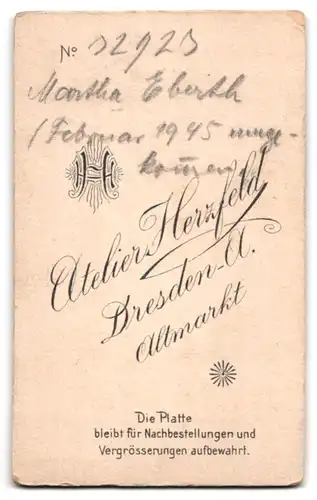 No 32923
Martha Eberth
(Februar 1945 umge-
kommen)
H H
Atelier Herzfeld
Dresden-A.
Altmarkt
Die Platte
bleibt für Nachbestellungen und
Vergrösserungen aufbewahrt.